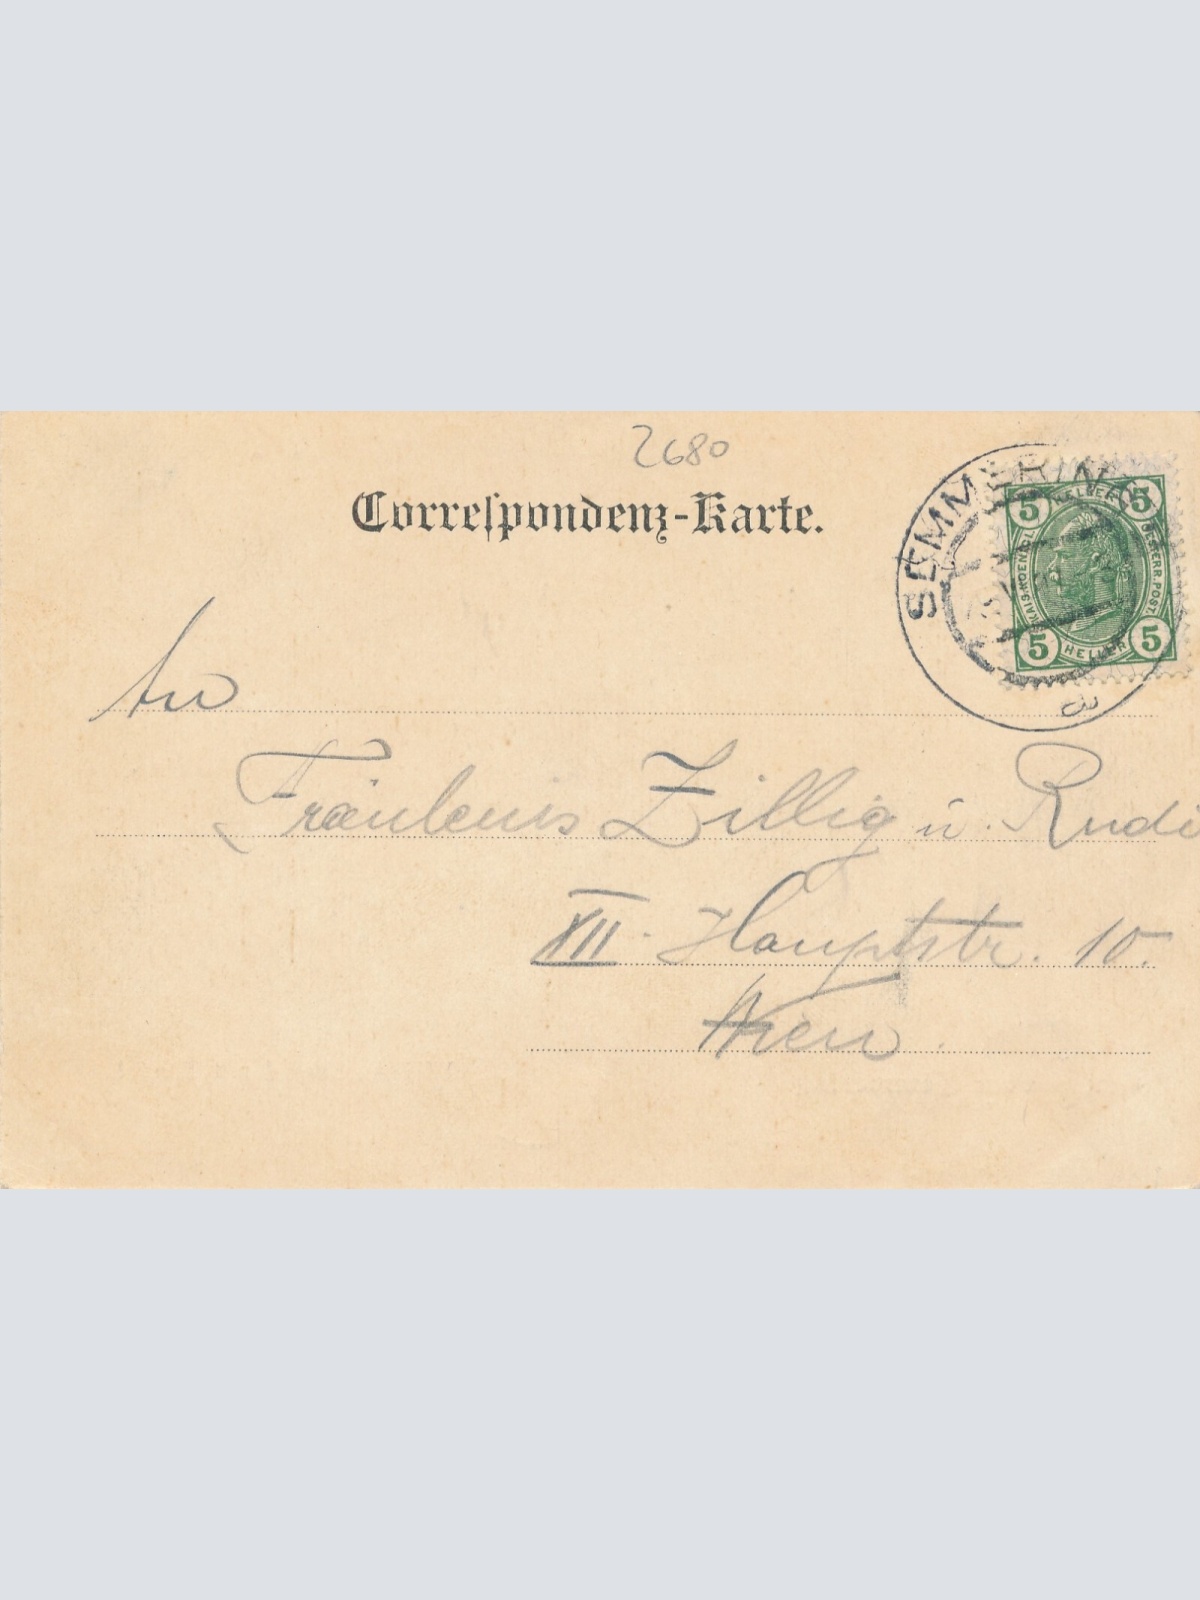 2680
Correspondenz-Karte.
SEMMERING
5 HELLER 5
KAIS. KOENIGL.
OESTERR. POST.
5 HELLER 5
An
Fräuleins Zillig u. Rudi
XII. Hauptstr. 10.
Wien